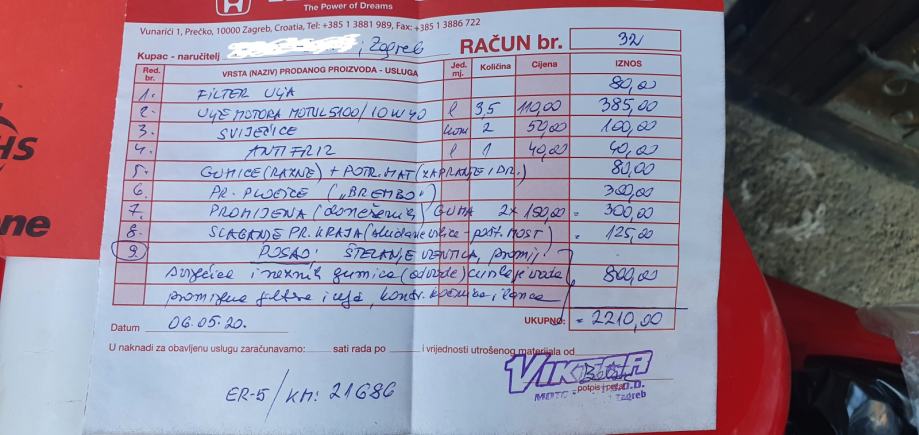 The Power of Dreams
Vunarići 1, Prečko, 10000 Zagreb, Croatia, Tel: +385 1 3881 989, Fax: +385 1 3886 722
Kupac - naručitelj , Zagreb RAČUN br. 32
Red. br. VRSTA (NAZIV) PRODANOG PROIZVODA - USLUGA Jed. mj. Količina Cijena IZNOS
1. FILTER ULJA 80,00
2. ULJE MOTORA MOTUL 5100/10W40 l 3,5 110,00 385,00
3. SVIJEĆICE kom 2 50,00 100,00
4. ANTIFRIZ l 1 40,00 40,00
5. GUMICE (RAZNE) + POTR. MAT (ZA PRANJE I DR.) 80,00
6. PR. PLOČICE ("BREMBO") 300,00
7. PROMIJENA (donešenih) GUMA 2x 150,00 = 300,00
8. SLAGANJE PR. KRAJA ( - MOST) = 125,00
9. POSAO: ŠTELANJE VENTILA, promij.
svijećica i raznih gumica (odvode) curenje vode 800,00
promijena filtera i ulja, kontr. kočnica, lanca
Datum 06.05.20. UKUPNO: = 2210,00
U naknadi za obavljenu uslugu zaračunavamo: sati rada po i vrijednosti utrošenog materijala od
VIKTOR
MOTO d.o.o.
potpis i pečat
Zagreb
ER-5/KM: 21686
HS
ne